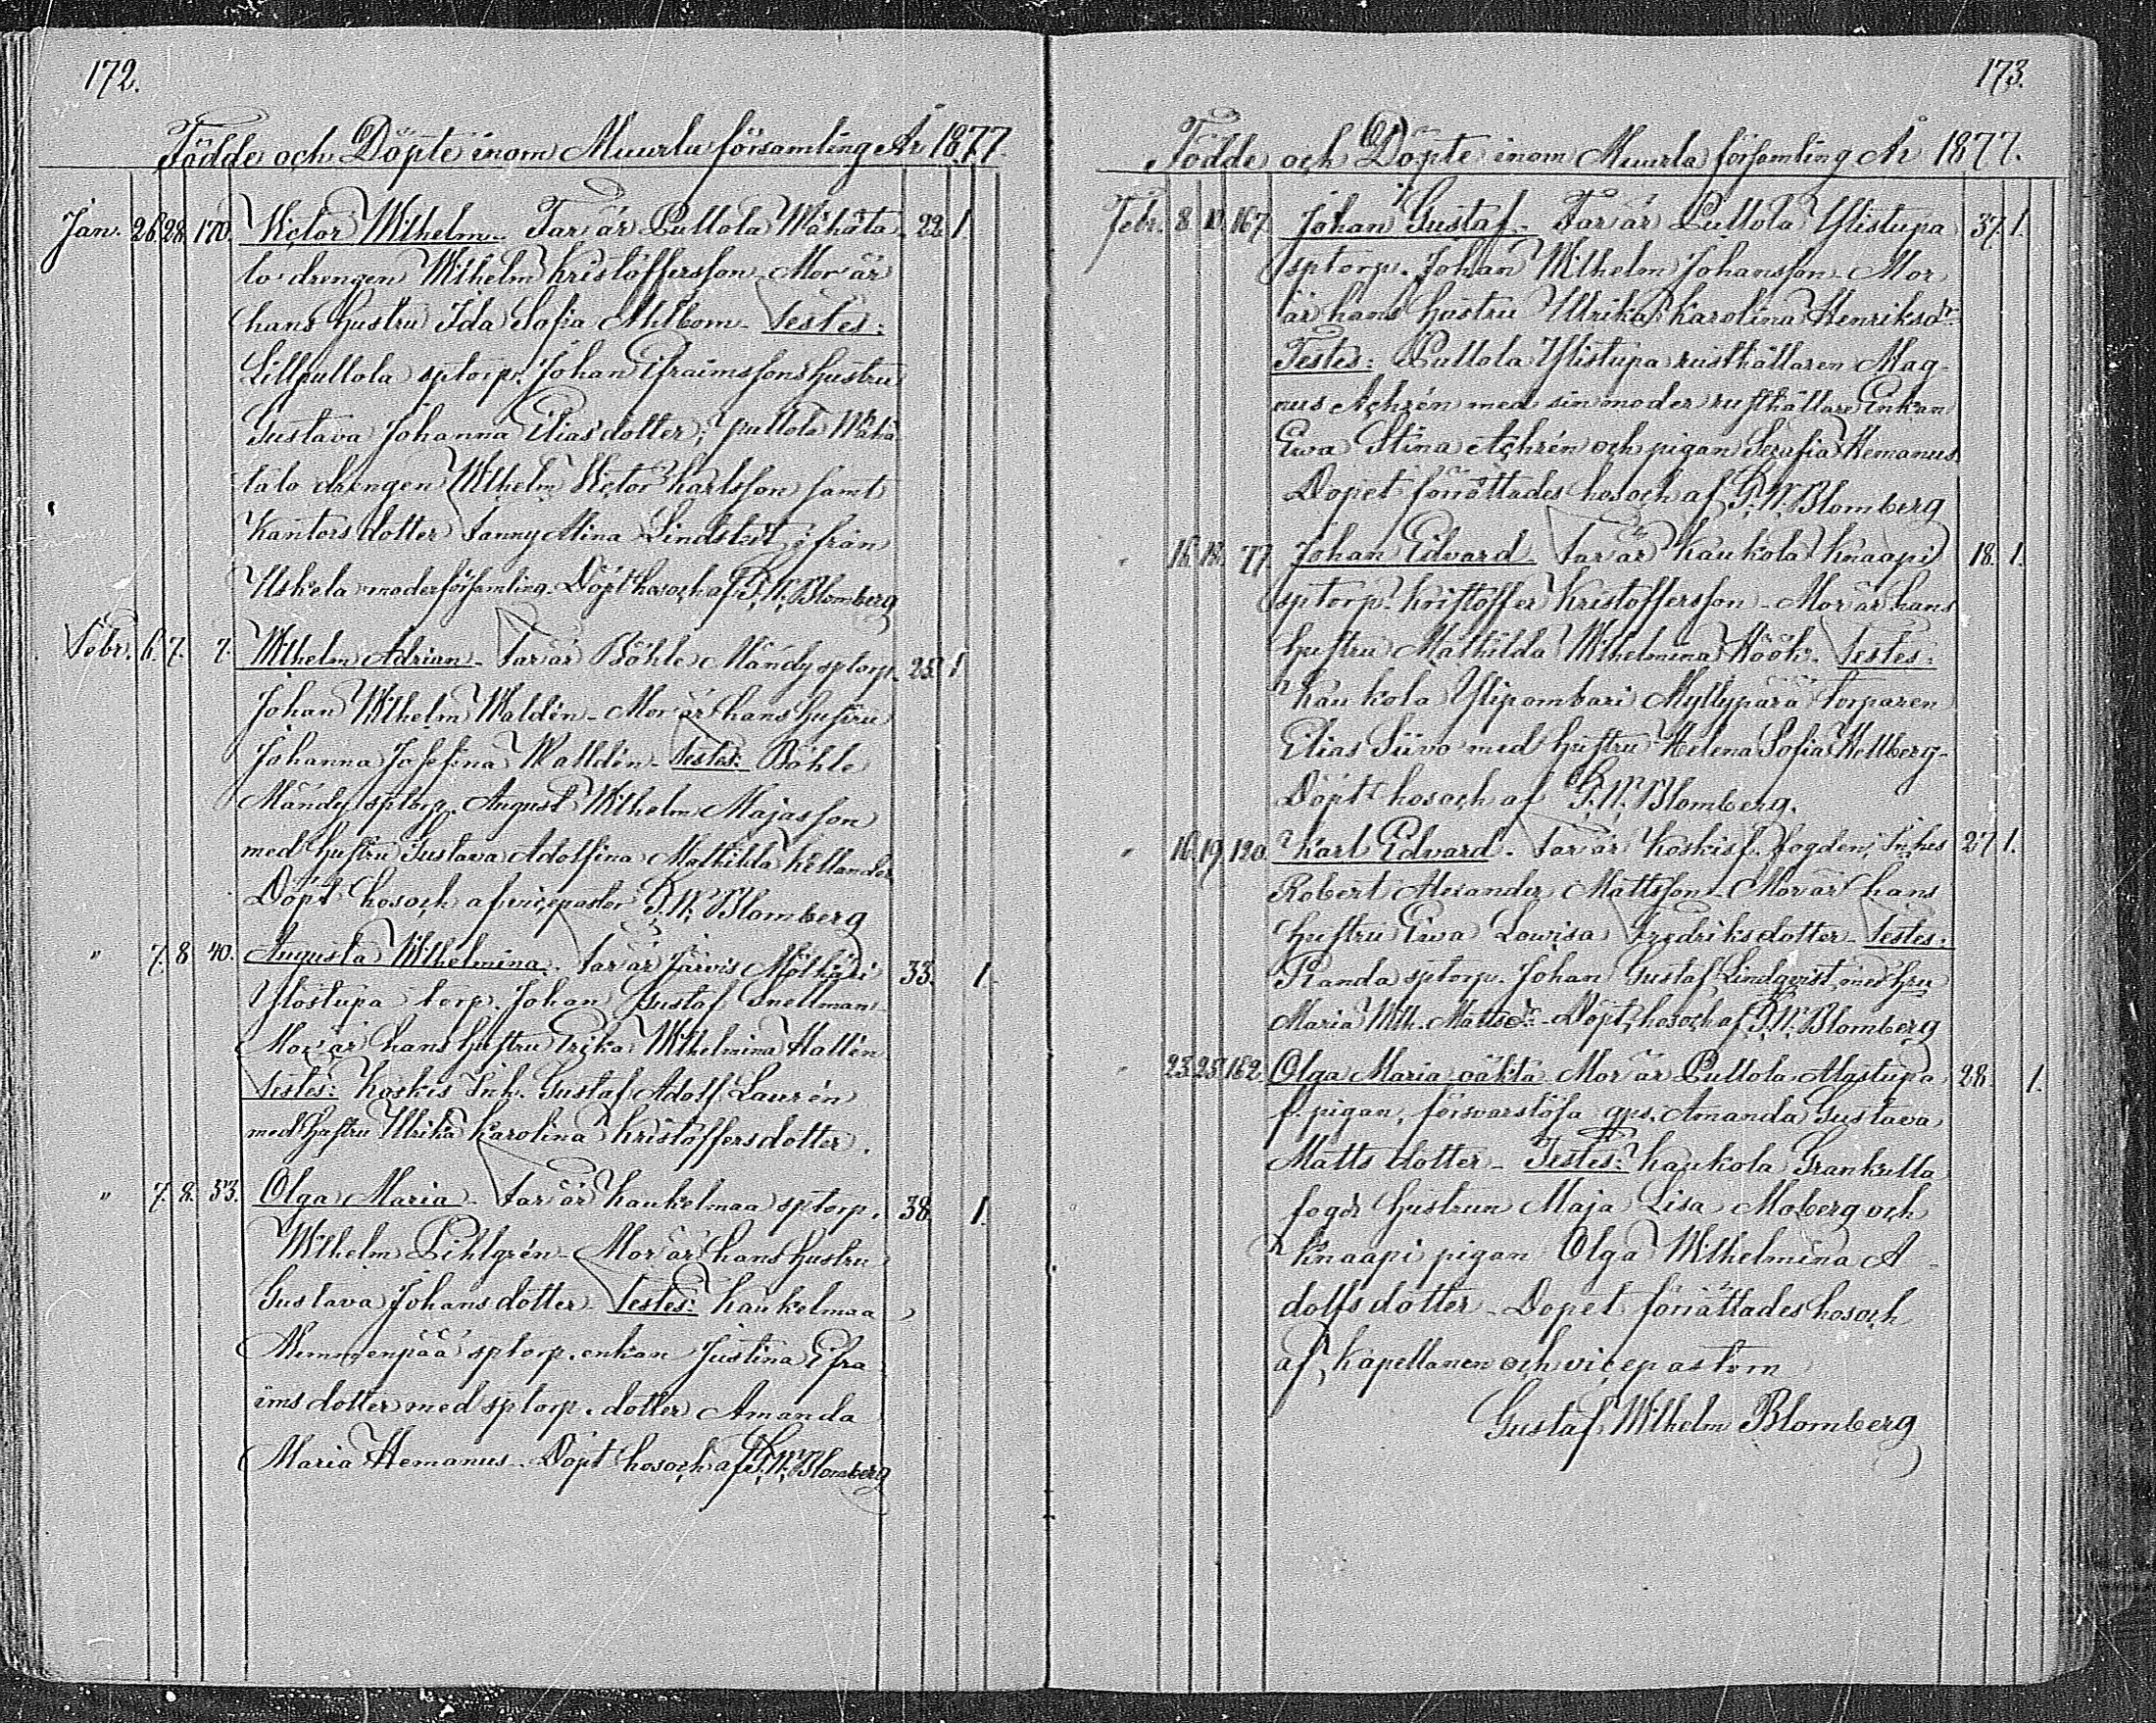 172.
Födde och Döpte inom Muurla församling År 1877.
Jan. 26. 28. 170. Victor Wilhelm - Far är Pullola Wähäta- 22. 1.
lo drengen Wilhelm Kristoffersson - Mor är
hans hustru Ida Sofia Ahlbom - Testes:
Lillpullola sptorp. Johan Efraimssons hustru
Gustava Johanna Eliasdotter; Pullola Wähä
talo drengen Wilhelm Victor Karlsson samt
Kantors dotter Fanny Mina Lindstedt ifrån
Uskela moderförsamling. Döpt hos och af G. W. Blomberg
Febr. 6. 7. 7. Wilhelm Adrian - Far är Böhle Mändy sptorp. 25. 1
Johan Wilhelm Waldén - Mor är hans hustru
Johanna Josefina Walldén - Testes: Böhle
Mändy sptorp. August Wilhelm Majasson
med hustru Gustava Adolfina Mathilda Kellander
Döpt hos och af vicepastor G. W. Blomberg
" 7. 8. 40. Augusta Wilhelmina - Far är Järvis Mölkäri 33. 1.
Ylöstupa torp. Johan Gustaf Snellman
Mor är hans hustru Erika Wilhelmina Hallén
Testes: Koskis Inh. Gustaf Adolf Laurén
med hustru Ulrika Karolina Kristoffersdotter.
" 7. 8. 53. Olga Maria - Far är Kaukelmaa sptorp. 38. 1.
Wilhelm Pihlgrén - Mor är hans hustru
Gustava Johansdotter - Testes: Kaukelmaa
Nummenpää sptorp. enkan Justina Efra
imsdotter med sptorp. dotter Amanda
Maria Hemanus - Döpt hos och af G. W. Blomberg
173.
Födde och Döpte inom Muurla församling År 1877.
Febr. 8. 11. 167. Johan Gustaf - Far är Pullola Ylistupa 37. 1.
sptorp. Johan Wilhelm Johansson - Mor
är hans hustru Ulrika Karolina Henriksdr.
Testes: Pullola Ylistupa rusthållaren Mag-
nus Achrén med sin moder rusthållare Enkan
Ewa Stina Achrén och pigan Serafia Hemanus
Dopet förrättades hos och af G. W. Blomberg
" 16. 18. 77. Johan Edvard - Far är Kaukola Knaapi 18. 1.
sptorp. Kristoffer Kristoffersson - Mor är hans
hustru Mathilda Wilhelmina Höök - Testes:
Kaukola Ylipombari Myllyperä torparen
Elias Siivo med hustru Helena Sofia Hellberg -
Döpt hos och af G. W. Blomberg.
" 16. 19. 120. Karl Edvard - Far är Koskis f. fogden, Inhes 27 1.
Robert Alexander Mattsson - Mor är hans
hustru Ewa Lowisa Fredriksdotter - Testes:
Randa sptorp. Johan Gustaf Lindqvist med hru
Maria Wilh. Mattsdr. - Döpt hos och af G. W. Blomberg
" 23. 25. 162. Olga Maria oäkta - Mor är Pullola Alastupa 28. 1.
f. pigan, försvarslösa qps. Amanda Gustava
Matts dotter - Testes: Kaukola Grankulla
fogde hustrun Maja Lisa Moberg och
Knaapi pigan Olga Wilhelmina A-
dolfsdotter - Dopet förrättades hos och
af, Kapellanen och vicepastorn
Gustaf Wilhelm Blomberg